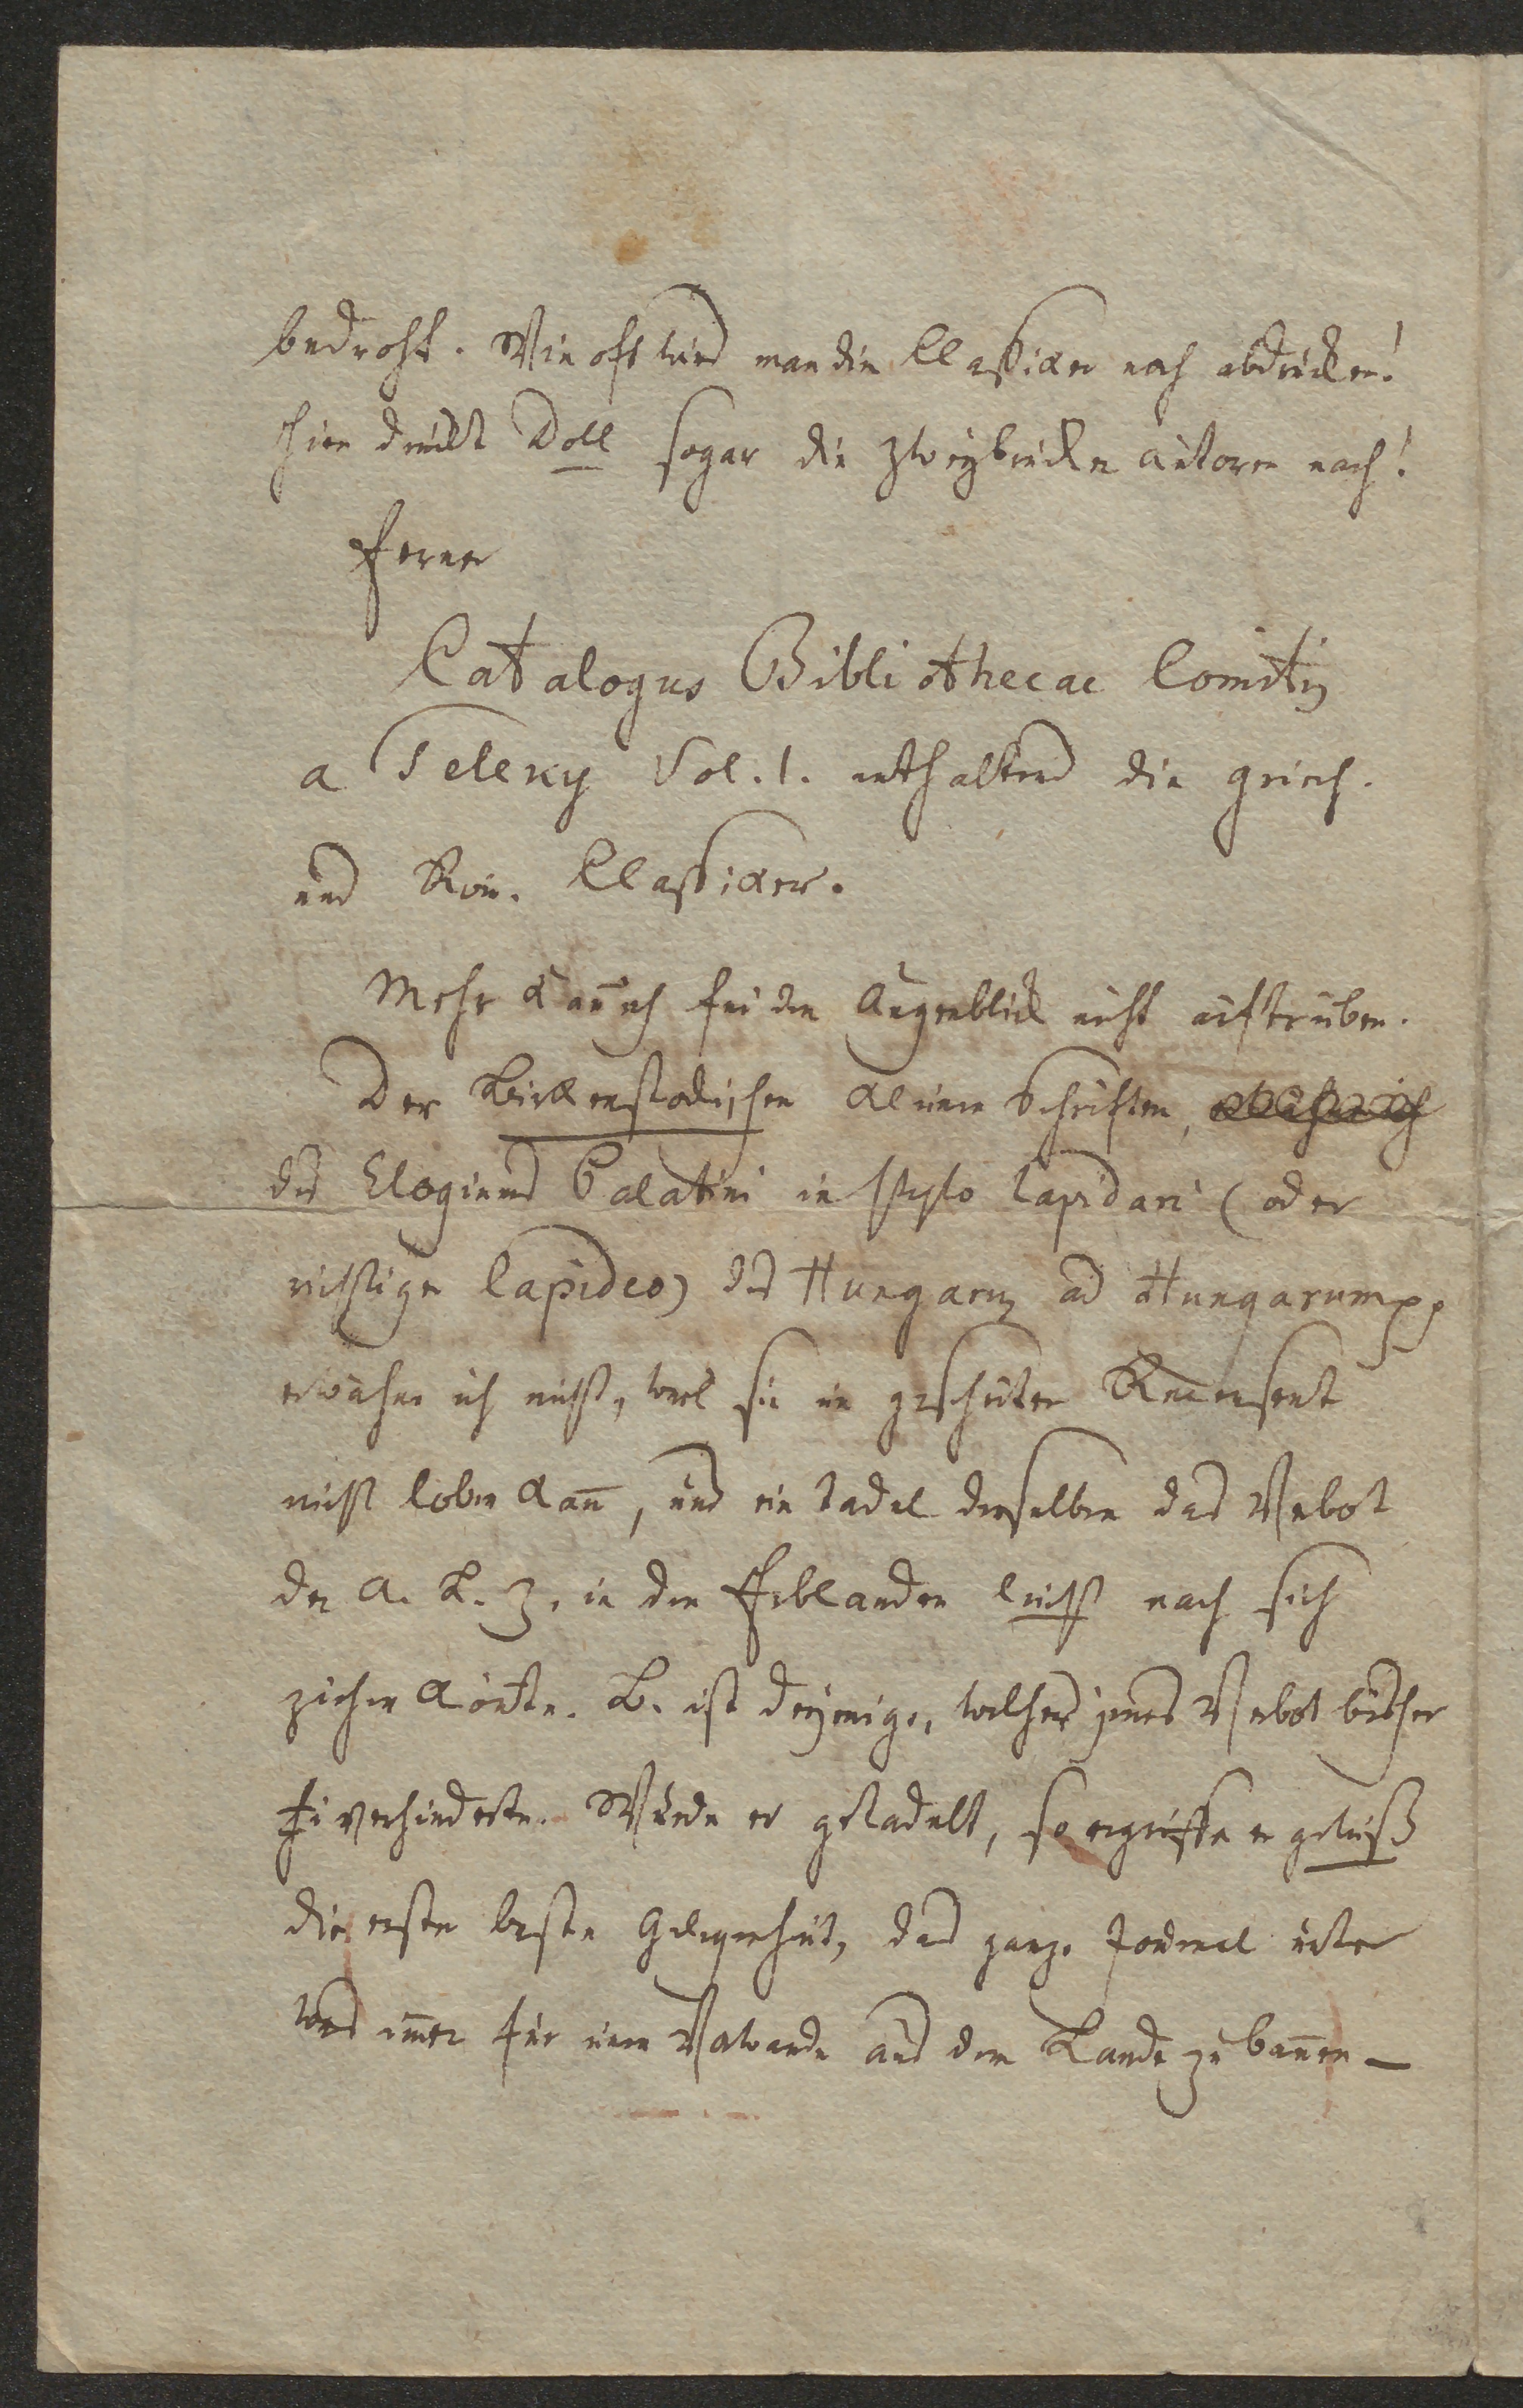 bedroht. Wie oft wird man die Classiker noch abdrucken!
Hier druckt Doll sogar die Zweybrücker autoren nach!
Ferner
Catalogus Bibliothecae Comitis
a Teleky Vol. 1. enthaltend die griech.
und Röm. Classiker.
Mehr kann ich für den Augenblick nicht auftreiben.
Der Birkenstockischen kleinen Schriften, erwähne ich
des Elogiums Palatini in stylo lapidari (oder
richtiger lapideo) des Hungarus ad Hungarum pp
erwähne ich nicht, weil sie ein gescheuter Recensent
nicht loben kann, und ein Tadel derselben das Verbot
der A. L. Z. in den Erblanden leicht nach sich
ziehen könte. B. ist derjenige, welcher jenes Verbot bisher
hinderte. Würde er getadelt, so ergriffe er gewiß
die erste beste Gelegenheit, das ganze Journal unter
was immer für einem Vorwande aus dem Lande zu bannen –